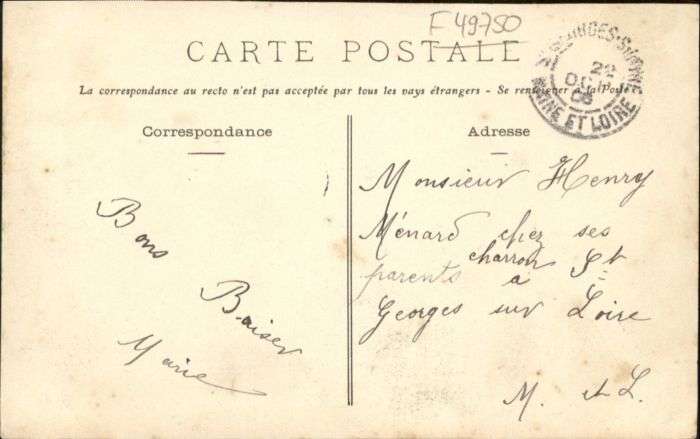 F 49750
CARTE POSTALE
La correspondance au recto n'est pas acceptée par tous les pays étrangers - Se renseigner à la Poste
Correspondance
Adresse
Bons
Baiser
Marie
Monsieur Henry
Ménard chez ses
charron
parents à St
Georges sur Loire
M. et L.
22
08
MAINE ET LOIRE